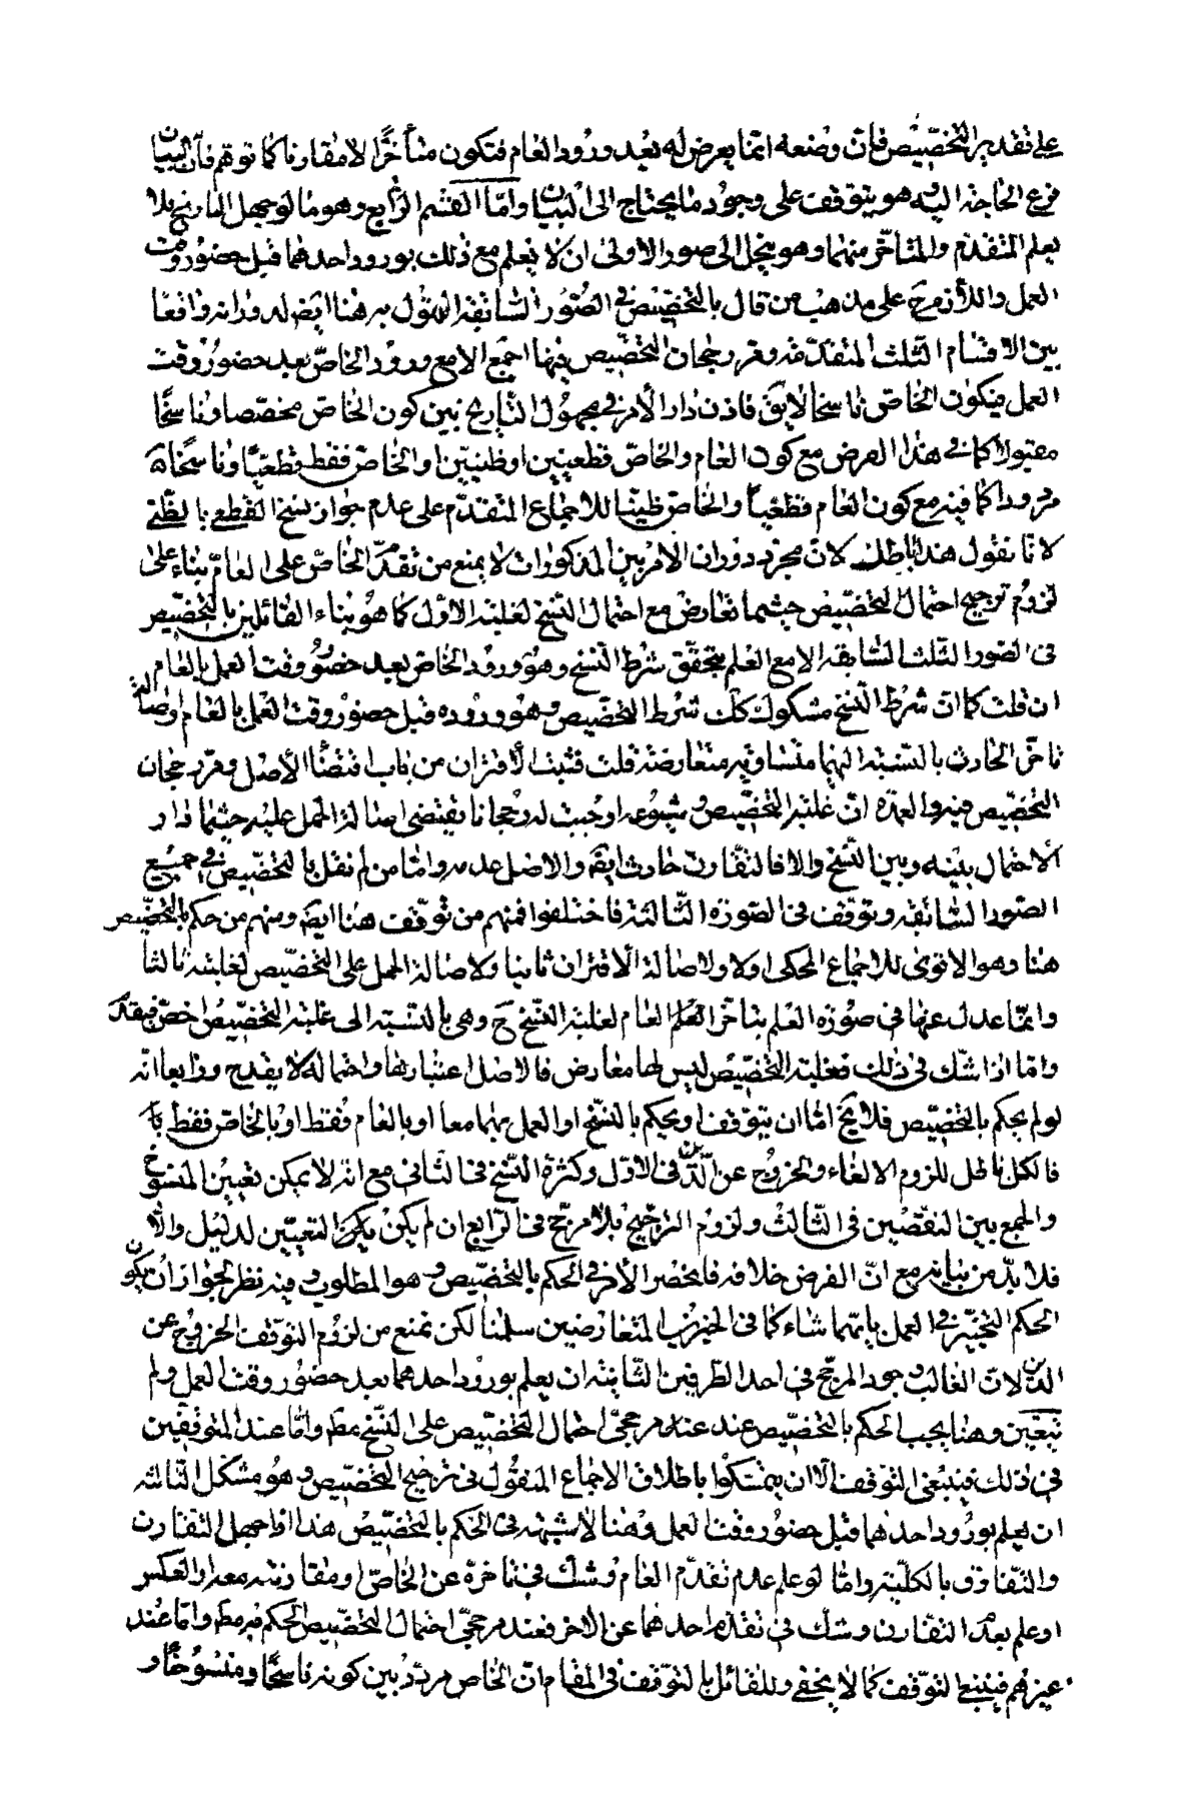 على تقدير التخصيص فان وصفه انما يعرض له بعد ورود العام فتكون متأخرا لا مقارنا كما توهم فان البيان
فرع الحاجة اليه هو يتوقف على وجود ما يحتاج الى البيان واما القسم الرابع وهو ما لو جهل التاريخ فلا
يعلم المتقدم والمتأخر منهما وهو ينحل الى صور الاولى ان لا يعلم مع ذلك بورود احدهما قبل حضور وقت
العمل واللازم ح على مذهب من قال بالتخصيص في الصور السابقة القول به هنا ايض لدورانه واقعا
بين الاقسام الثلث المتقدمة وقد رجحان التخصيص فيها اجمع الا مع ورود الخاص بعد حضور وقت
العمل فيكون الخاص ناسخا لا يق فاذن دار الأمر في مجهول التاريخ بين كون الخاص مخصصا وناسخا
مقبولا كما في هذا الفرض مع كون العام والخاص قطعيين او ظنيين او الخاص فقط قطعيا وناسخا
مردودا كما فيه مع كون العام قطعيا والخاص ظنيا للاجماع المتقدم على عدم جواز نسخ القطعي بالظني
لانا نقول هذا باطل لان مجرد دوران الامر بين المذكورات لا يمنع من تقدم الخاص على العام بناء على
لزوم ترجيح احتمال التخصيص حيثما تعارض مع احتمال النسخ لغلبة الاول كما هو بناء القائلين بالتخصيص
فى الصور الثلث السابقة الا مع العلم بتحقق شرط النسخ وهو ورود الخاص بعد حضور وقت العمل بالعام
ان قلت كما ان شرط النسخ مشكوك كك شرط التخصيص وهو وروده قبل حضور وقت العمل بالعام واصالة
تاخر الحادث بالنسبة اليهما متساوية متعارضة قلت فثبت الاقتران من باب اقتضاء الأصل وقد رجحان
التخصيص فيه والعمدة ان غلبة التخصيص وشيوعه اوجبت له رجحانا يقتضى اصالة الحمل عليه حيثما دار
الاحتمال بينه وبين النسخ والا فالتقارن حادث ايض والاصل عدمه واما من لم نقل بالتخصيص في جميع
الصور السابقة وتوقف فى الصورة الثالثة فاختلفوا فمنهم من توقف هنا ايض ومنهم من حكم بالتخصيص
هنا وهو الاقوى للاجماع المحكى اولا ولاصالة الاقتران ثانيا ولاصالة الحمل على التخصيص لغلبته ثالثا
وانما عدل عنها في صورة العلم بتاخر العام لغلبة النسخ ح وهى بالنسبة الى غلبة التخصيص اخص فيقدم
واما اذا شك فى ذلك فغلبة التخصيص ليس لها معارض فالاصل اعتبارها واحتماله لا يقدح ورابعا انه
لو لم يحكم بالتخصيص فلا يخ اما ان يتوقف او يحكم بالنسخ او العمل بهما معا او بالعام فقط او بالخاص فقط
فالكل باطل للزوم الالغاء والخروج عن الدين فى الاول وكثرة النسخ فى الثانى مع انه لا يمكن تعيين المنسوخ
والجمع بين النقيضين فى الثالث ولزوم الترجيح بلا مرجح فى الرابع ان لم يكن التعيين لدليل والا
فلا بد من بيانه مع ان الفرض خلافه فانحصر الأمر في الحكم بالتخصيص وهو المطلوب وفيه نظر لجواز ان يكون
الحكم التخيير في العمل بايهما شاء كما فى الخبرين المتعارضين سلمنا لكن نمنع من لزوم التوقف الخروج عن
الدين لان الغالب وجود المرجح في احد الطرفين الثانية ان يعلم بورود احدهما بعد حضور وقت العمل ولم
يتعين وهنا يجب الحكم بالتخصيص عند مرجحي احتمال التخصيص على النسخ مط واما عند المتوقفين
في ذلك فينبغى التوقف الا ان يتمسكوا باطلاق الاجماع المنقول فى ترجيح التخصيص وهو مشكل الثالثة
ان يعلم بورود احدهما قبل حضور وقت العمل وهنا لا شبهة فى الحكم بالتخصيص هذا اذا جهل التقارن
والتفاوت بالكلية واما لو علم عدم تقدم العام وشك في تاخره عن الخاص او مقارنته معه او العكس
او علم بعدم التقارن وشك في تقدم احدهما عن الاخر فعند مرجحي احتمال التخصيص الحكم فيه مط واما عند
غيرهم فينبغى التوقف كما لا يخفى وللقائل بالتوقف فى المقام ان الخاص مردد بين كونه ناسخا ومنسوخا و